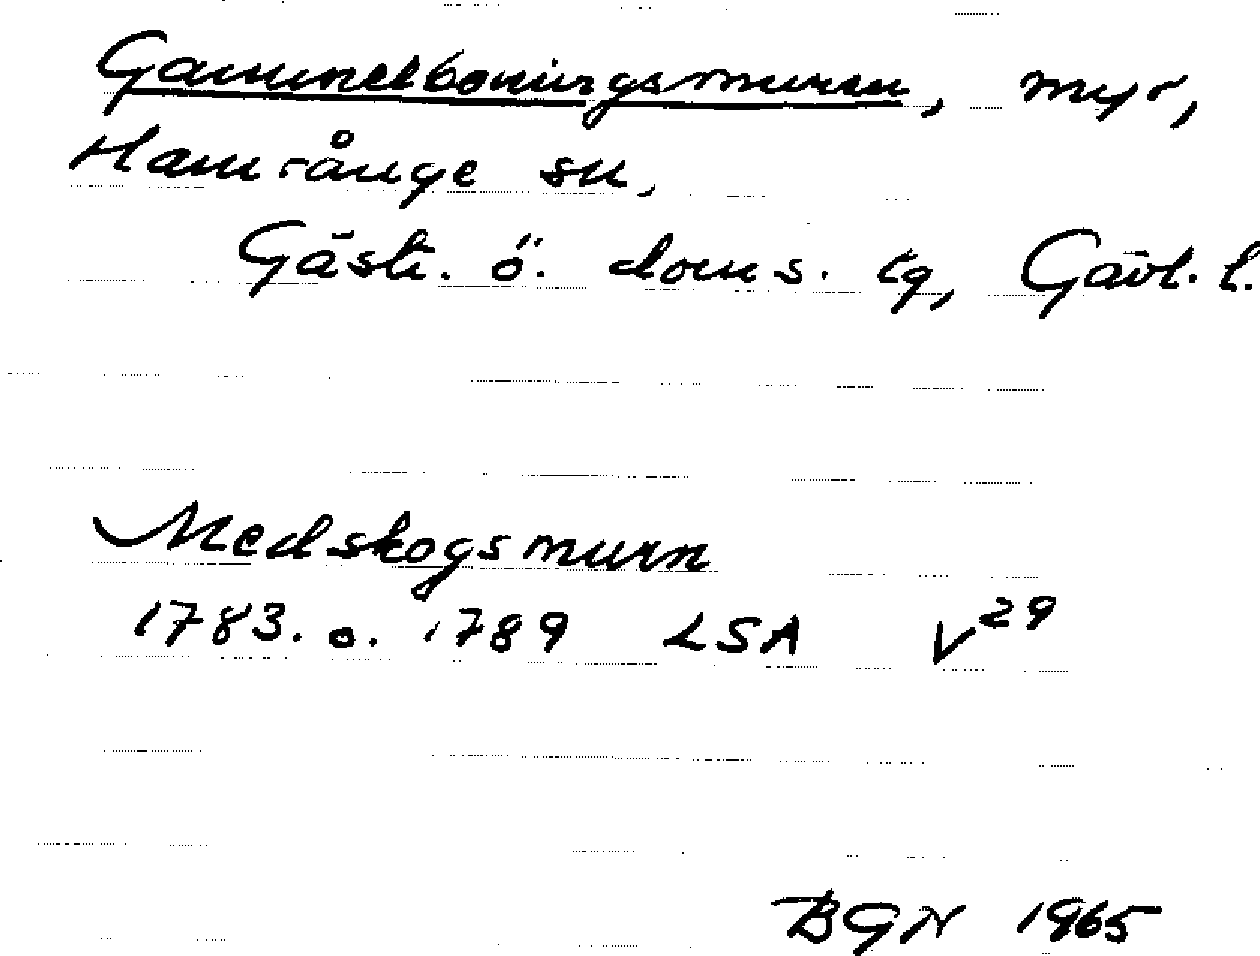 Gammelboningsmuren, myr,
Hamrånge sn,
Gästr. ö. doms. tg, Gävl. l.
Medskogsmurn
1783. o. 1789 LSA V 29
BGN 1965